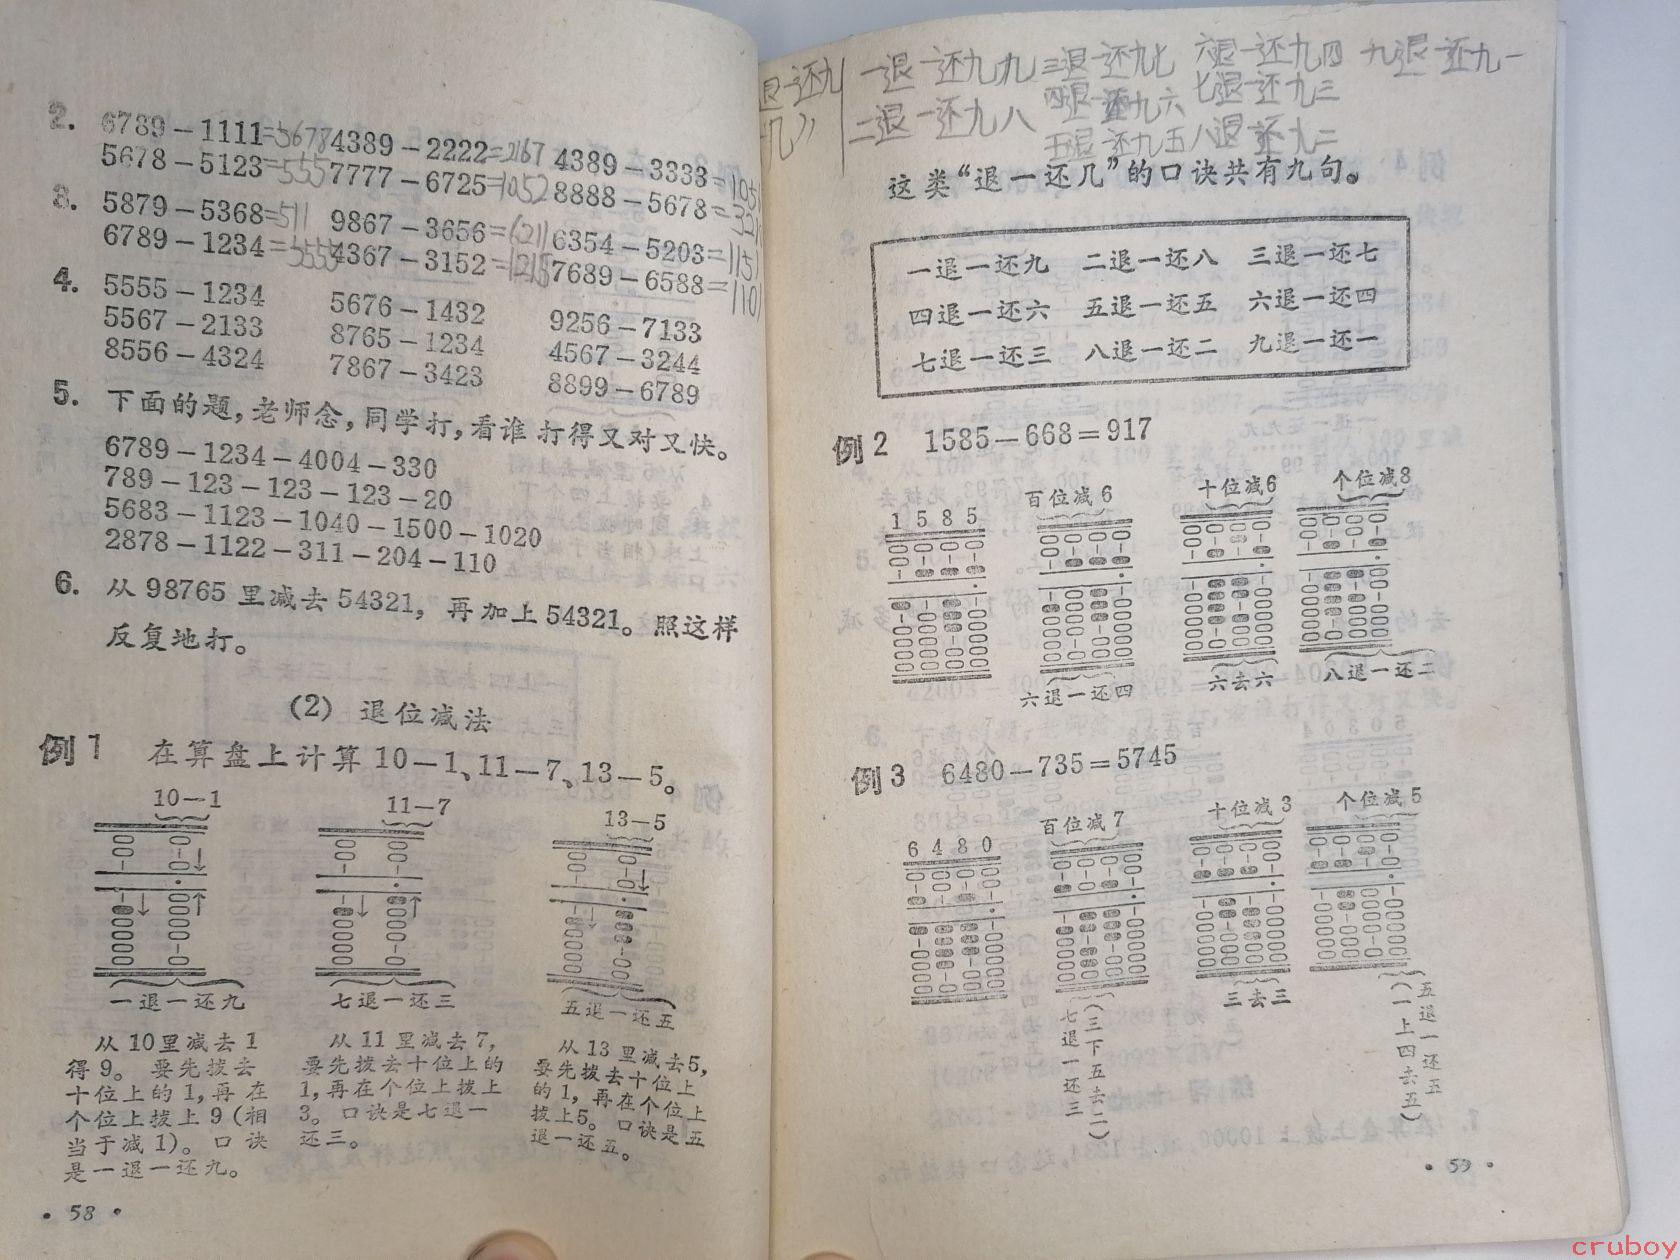 2. 6789－1111=5678 4389－2222=2167 4389－3333=105
5678－5123=555 7777－6725=1052 8888－5678=321
3. 5879－5368=511 9867－3656=6211 6354－5203=1151
6789－1234=5555 4367－3152=1215 7689－6588=1101
4. 5555－1234 5676－1432 9256－7133
5567－2133 8765－1234 4567－3244
8556－4324 7867－3423 8899－6789
5. 下面的题，老师念，同学打，看谁打得又对又快。
6789－1234－4004－330
789－123－123－123－20
5683－1123－1040－1500－1020
2878－1122－311－204－110
6. 从 98765 里减去 54321，再加上 54321。照这样
反复地打。
(2) 退位减法
例1 在算盘上计算 10－1、11－7、13－5。
10－1 11－7 13－5
一退一还九 七退一还三 五退一还五
从 10 里减去 1
得 9。要先拨去
十位上的 1，再在
个位上拨上 9（相
当于减 1）。口诀
是一退一还九。
从 11 里减去 7，
要先拨去十位上的
1，再在个位上拨上
3。口诀是七退一
还三。
从 13 里减去 5，
要先拨去十位上
的 1，再在个位上
拨上 5。口诀是五
退一还五。
• 58 •
退一还九 一退一还九九 三退一还九七 六退一还九四 九退一还九一
几》 二退一还九八 四退一还九六 七退一还九三
五退一还九五 八退一还九二
这类“退一还几”的口诀共有九句。
一退一还九 二退一还八 三退一还七
四退一还六 五退一还五 六退一还四
七退一还三 八退一还二 九退一还一
例2 1585－668＝917
1585 百位减6 十位减6 个位减8
六退一还四 六去六 八退一还二
例3 6480－735＝5745
6480 百位减7 十位减3 个位减5
七退一还三
（三下五去二）
三去三
五退一还五
（一上四去五）
• 59 •
cruboy